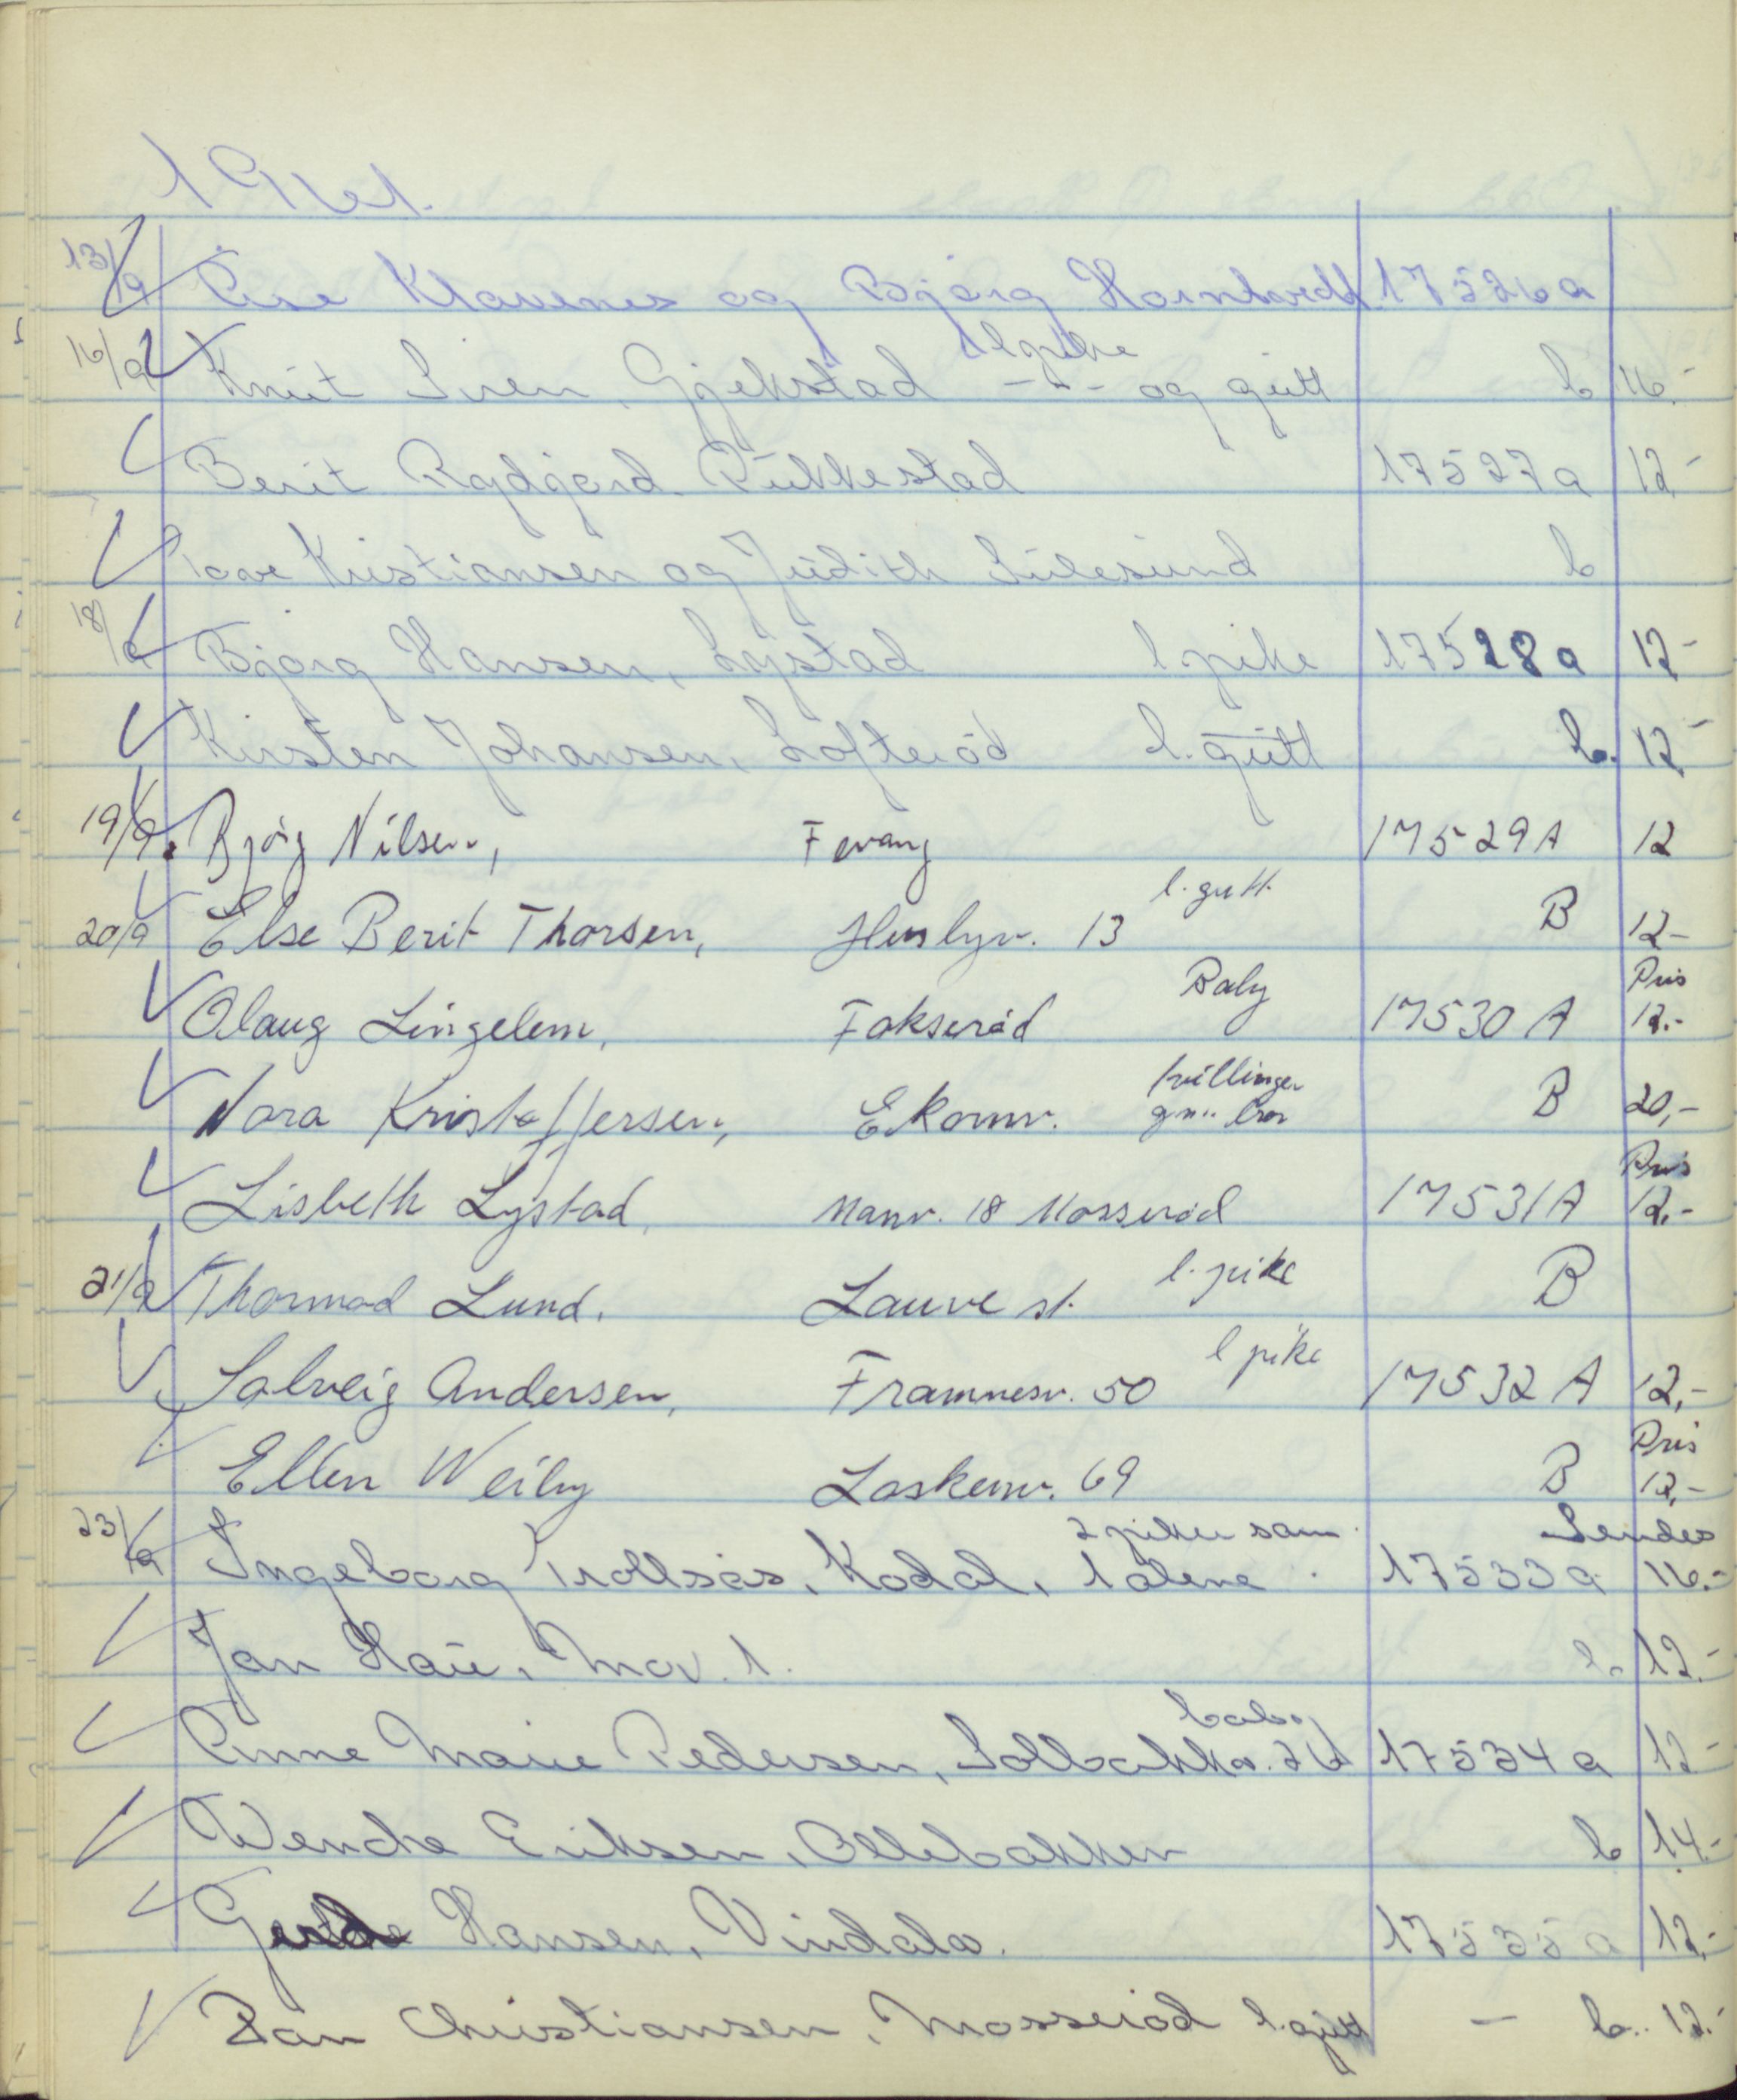 1961.
13/9 Åse Klavenes og Bjørg Hornhardt 17526a
16/9 Knut Siren, Gjekstad 1 pike -"- og gutt b 16.-
Berit Rydgård Pukkestad 17527a 12.-
Tove Kristiansen og Judith Sulesund b
18/9 Bjørg Hansen, Lystad l pike 17528a 12-
Kirsten Johansen, Lofterød l. gutt b. 12.-
19/9 Bjørg Nilsen, Fevang 17529A 12
20/9 Else Berit Thorsen, Husbyv. 13 l. gutt B 12-
Olaug Lingelem, Fokserød Baby 17530 A Pris 12.-
Nora Kristoffersen, Ekornv. tvillinger B 20,-
Lisbeth Lystad, Manv. 18 Mosserød 17531A Pris 12.-
21/9 Thormod Lund. Lauve st. l. pike B
Solveig Andersen, Framnesv. 50 l pike 17532 A 12,-
Ellen Weiby Laskenv. 69 B Pris 12,-
23/9 Ingeborg Trollsås, Kodal, 2 piker sam. 1 alene. 17533a Sendes 16.-
Jan Hau, Mov. 1. b. 12.-
Anne Marie Pedersen, Solbakkv. 26 baby 17534a 12-
Wenche Eriksen, Ollebakken b 14.-
Gerda Hansen, Vindalv. 17535a 12.-
Jan Christiansen, Mosserød l. gutt - b. 12.-